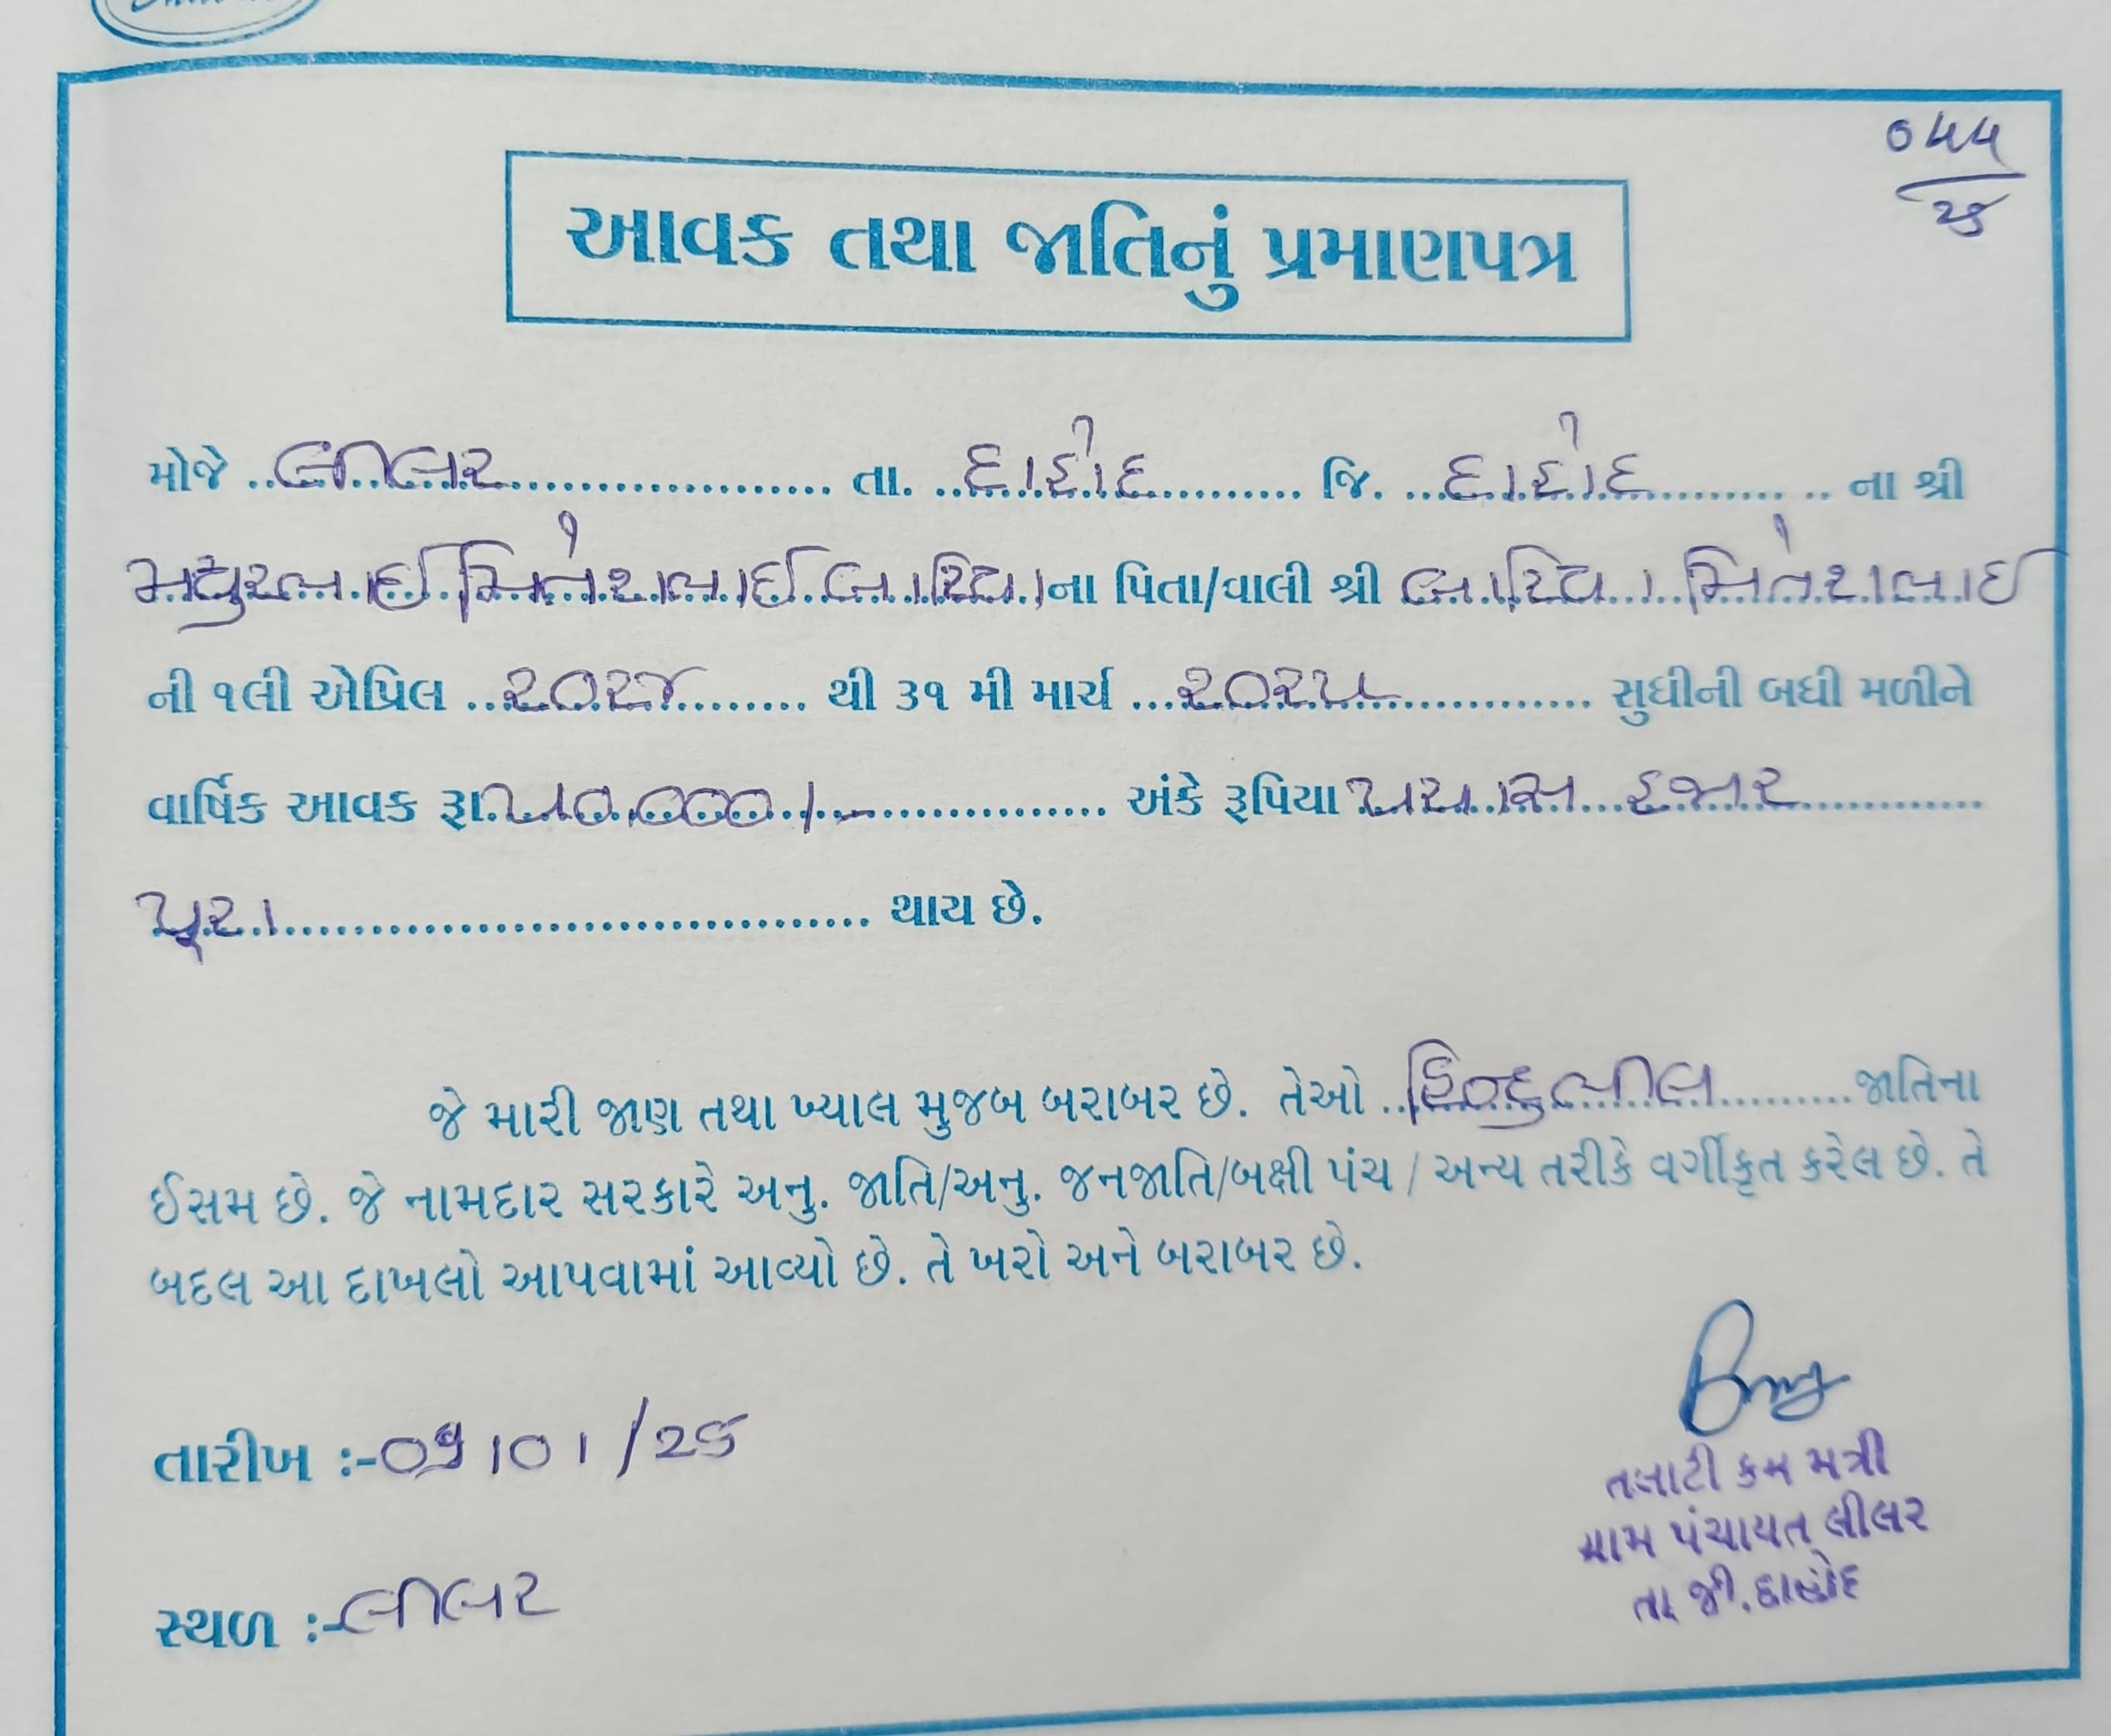 ૦૫૫
૨૬
આવક તથા જાતિનું પ્રમાણપત્ર
મોજે ..લીલર.......... તા. ..દાહોદ.......... જિ. ...દાહોદ.......... ના શ્રી
મયુરભાઈ મિતેશભાઈ બારિયા ના પિતા/વાલી શ્રી બારિયા મિતેશભાઈ
ની ૧લી એપ્રિલ ..૨૦૨૪........ થી ૩૧ મી માર્ચ ...૨૦૨૫.......... સુધીની બધી મળીને
વાર્ષિક આવક રૂા. ૫૦,૦૦૦/-.......... અંકે રૂપિયા પચાસ હજાર..........
પૂરા.......... થાય છે.
જે મારી જાણ તથા ખ્યાલ મુજબ બરાબર છે. તેઓ ..હિન્દુ ભીલ.......... જાતિના
ઈસમ છે. જે નામદાર સરકારે અનુ. જાતિ/અનુ. જનજાતિ/બક્ષી પંચ / અન્ય તરીકે વર્ગીકૃત કરેલ છે. તે
બદલ આ દાખલો આપવામાં આવ્યો છે. તે ખરો અને બરાબર છે.
તારીખ :- /01/26
તલાટી કમ મંત્રી
ગ્રામ પંચાયત લીલર
તા જી. દાહોદ
સ્થળ :- લીલર